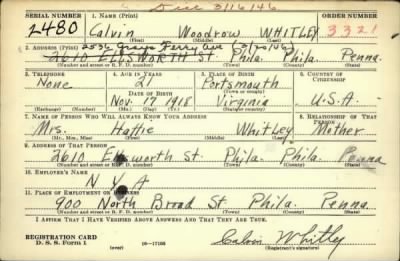 Died 3/16/46
SERIAL NUMBER 1. NAME (Print) ORDER NUMBER
2480 Calvin Woodrow WHITLEY 3321
2536 Grays Ferry Ave
2. ADDRESS (Print)
2610 ELLSWORTH St. Phila. Phila. Penna.
(Number and street or R. F. D. number) (Town) (County) (State)
3. TELEPHONE 4. AGE IN YEARS 5. PLACE OF BIRTH 6. COUNTRY OF CITIZENSHIP
None 21 Portsmouth
DATE OF BIRTH (Town or county)
Nov. 17 1918 Virginia U.S.A.
(Exchange) (Number) (Mo.) (Day) (Yr.) (State or country)
7. NAME OF PERSON WHO WILL ALWAYS KNOW YOUR ADDRESS 8. RELATIONSHIP OF THAT PERSON
Mrs. Hattie Whitley Mother
(Mr., Mrs., Miss) (First) (Middle) (Last)
9. ADDRESS OF THAT PERSON
2610 Ellsworth St. Phila. Phila. Penna
(Number and street or R. F. D. number) (Town) (County) (State)
10. EMPLOYER'S NAME
N Y A
11. PLACE OF EMPLOYMENT OR BUSINESS
900 North Broad St. Phila. Penna.
(Number and street or R. F. D. number) (Town) (County) (State)
I AFFIRM THAT I HAVE VERIFIED ABOVE ANSWERS AND THAT THEY ARE TRUE.
REGISTRATION CARD
D. S. S. Form 1 (over) 16—17105 Calvin Whitley
(Registrant's signature)